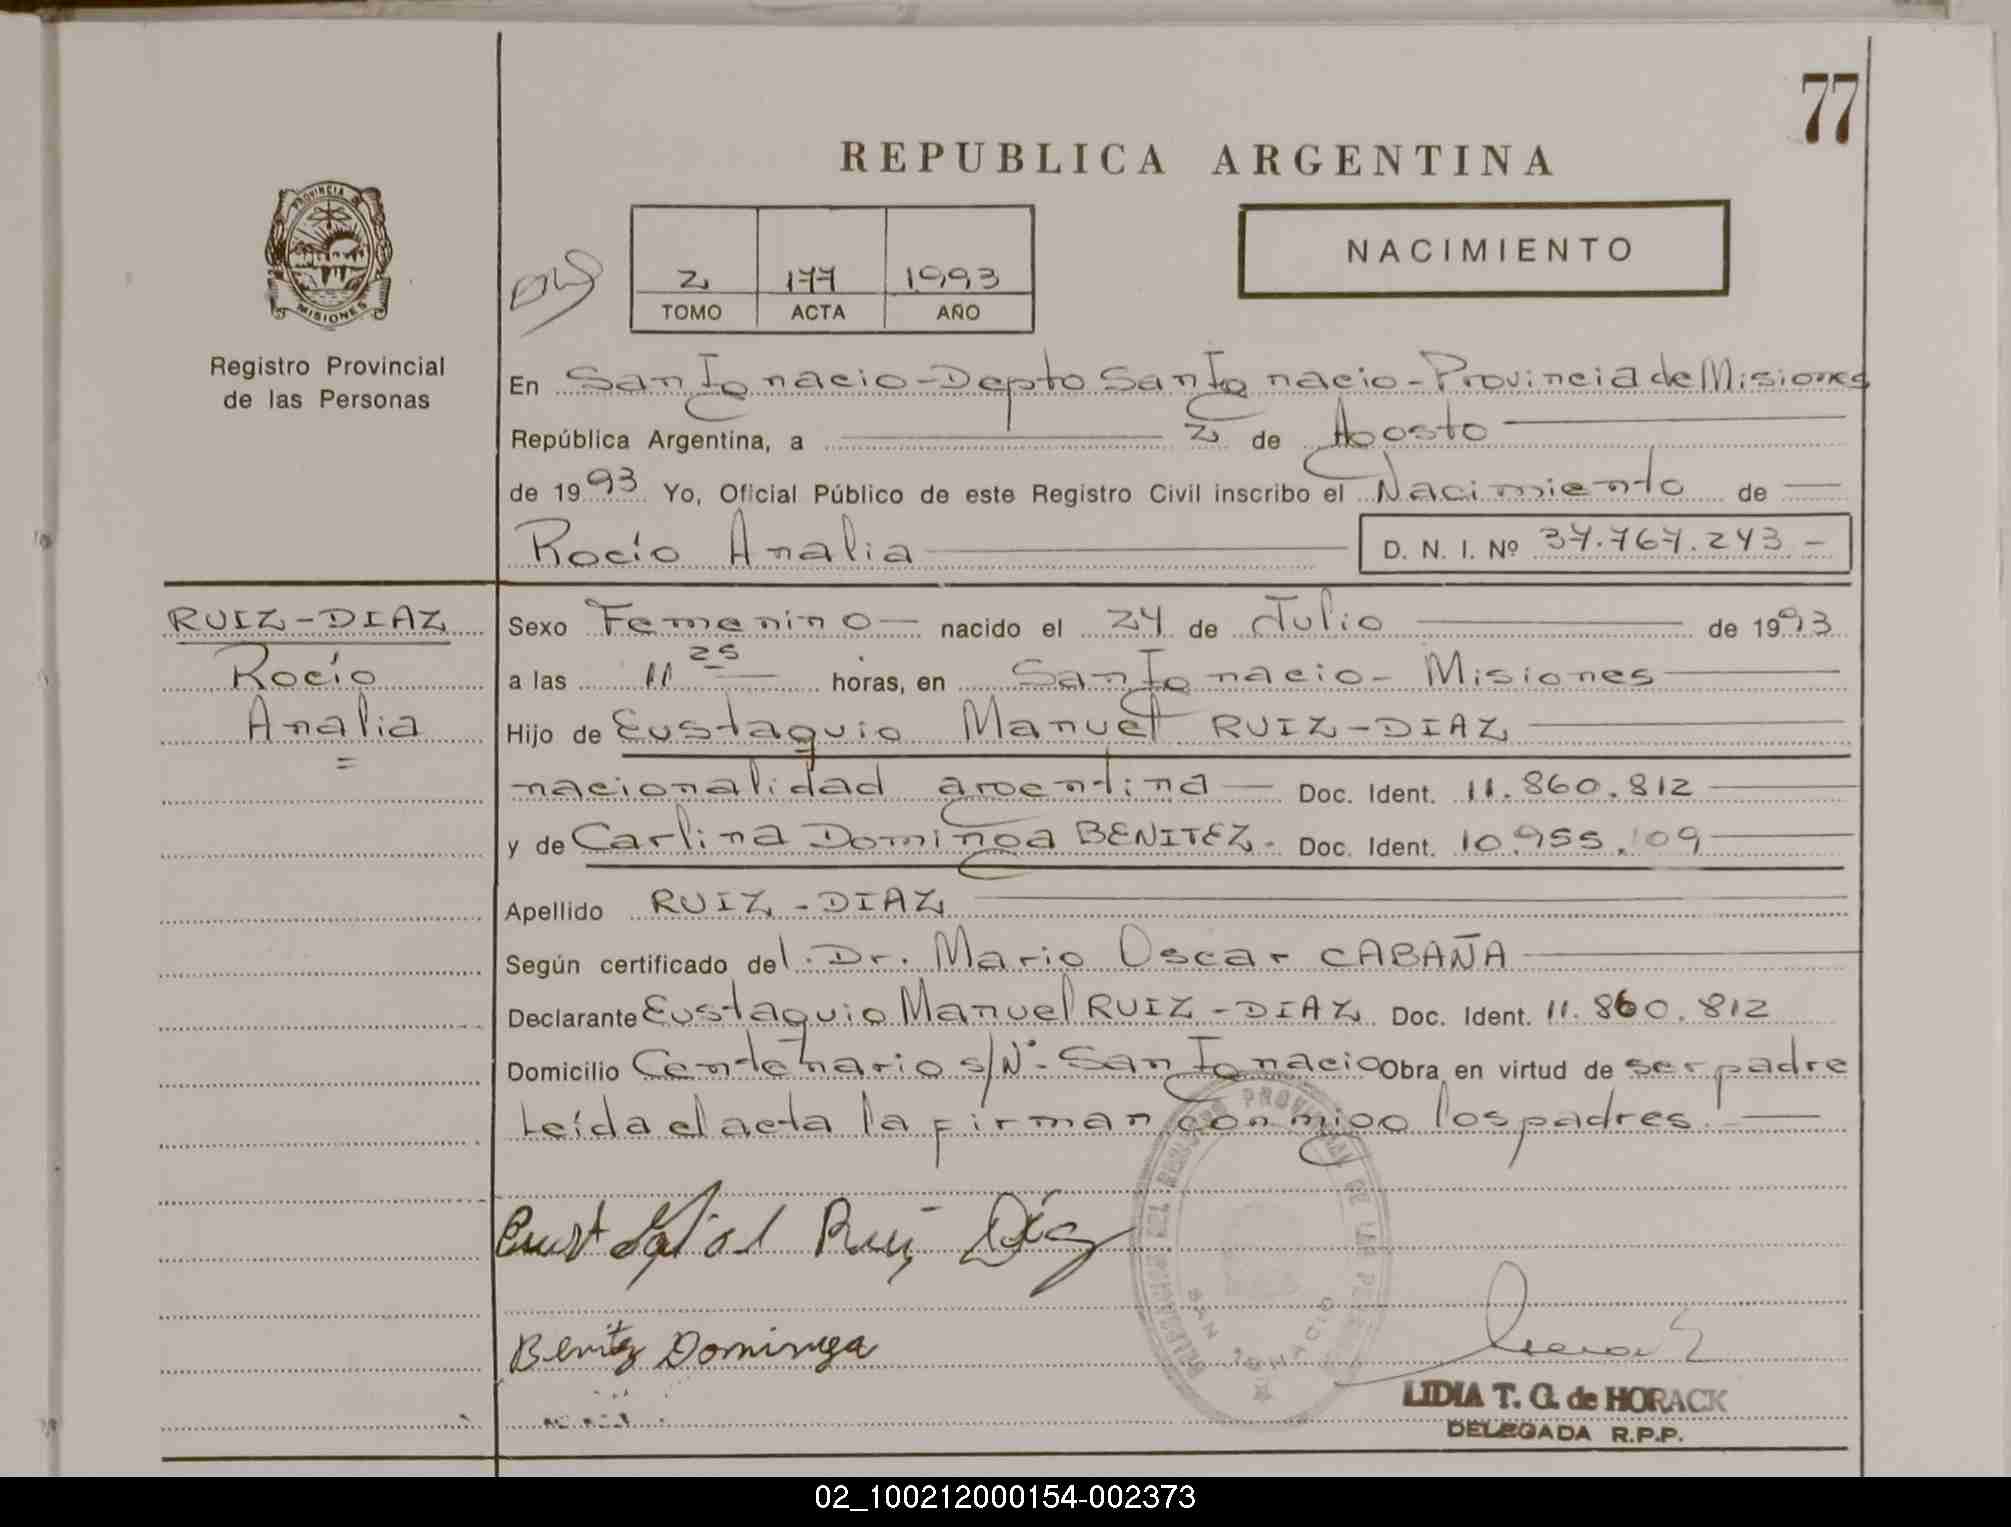 77
REPUBLICA ARGENTINA
PROVINCIA DE
MISIONES
Registro Provincial
de las Personas
2 177 1993
TOMO ACTA AÑO
NACIMIENTO
En San Ignacio-Depto San Ignacio-Provincia de Misiones
República Argentina, a 2 de Agosto
de 1993 Yo, Oficial Público de este Registro Civil inscribo el Nacimiento de
Rocío Analia D. N. I. Nº 37.767.243-
RUIZ-DIAZ
Rocío
Analia
=
Sexo Femenino nacido el 24 de Julio de 1993
a las 11 25 horas, en San Ignacio- Misiones
Hijo de Eustaquio Manuel RUIZ-DIAZ
nacionalidad argentina Doc. Ident. 11.860.812
y de Carlina Dominga BENITEZ. Doc. Ident. 10.955.109
Apellido RUIZ-DIAZ
Según certificado del Dr. Mario Oscar CABAÑA
Declarante Eustaquio Manuel RUIZ-DIAZ Doc. Ident. 11.860.812
Domicilio Centenario s/Nº- San Ignacio Obra en virtud de ser padre
Leída el acta la firman conmigo los padres.
Ruiz Díaz
Benitez Dominga
SAN IGNACIO
LIDIA T. G. de HORACK
DELEGADA R.P.P.
02_100212000154-002373